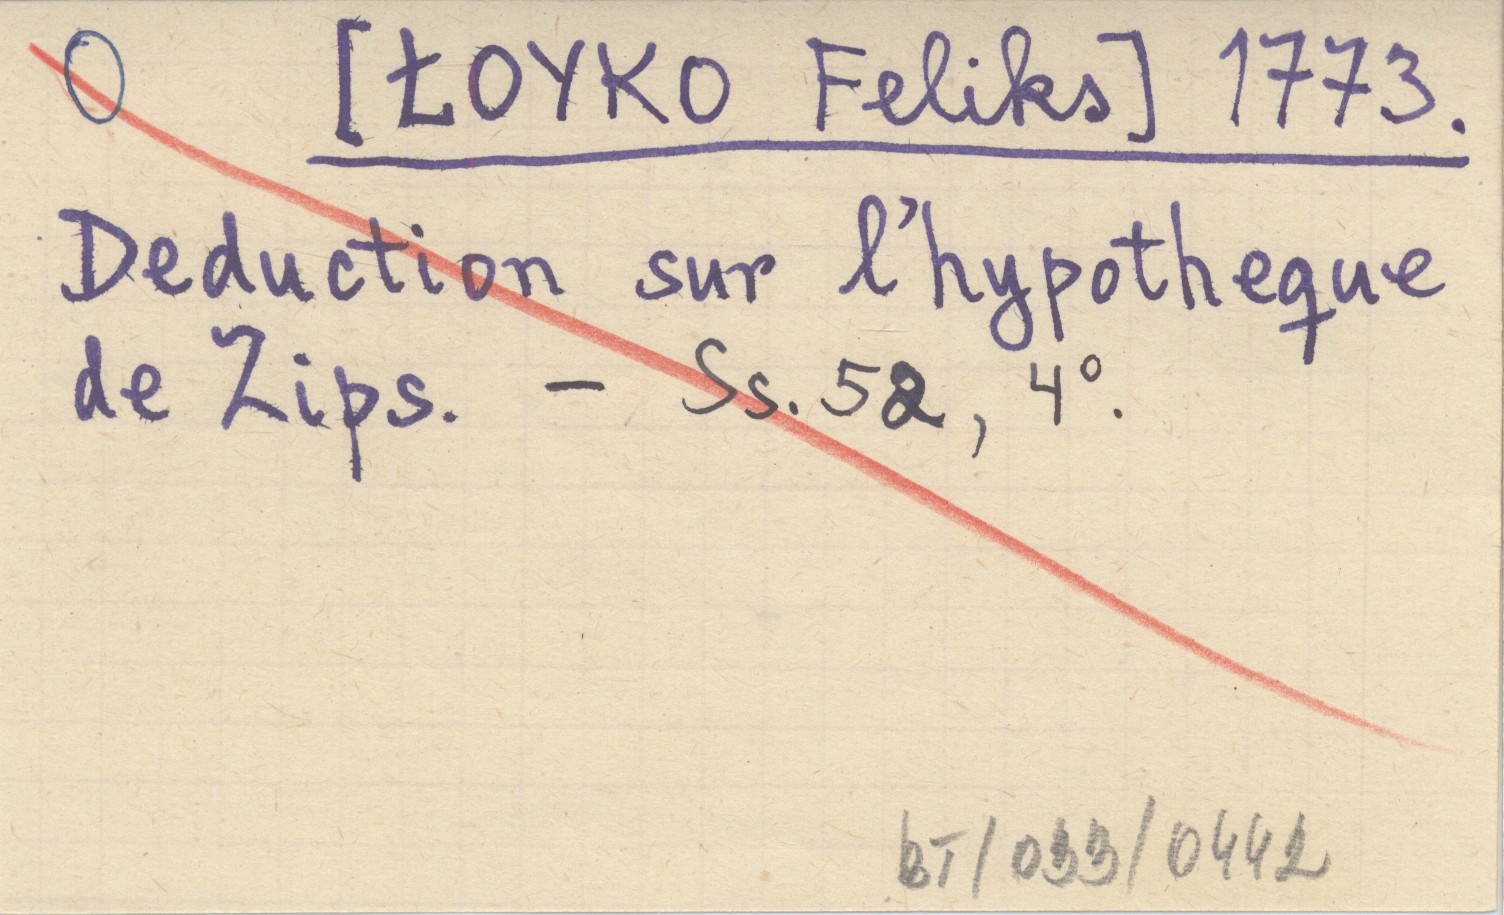 O [ŁOYKO Feliks] 1773.
Deduction sur l'hypotheque
de Zips. - Ss. 52, 4º.
BT/033/0442